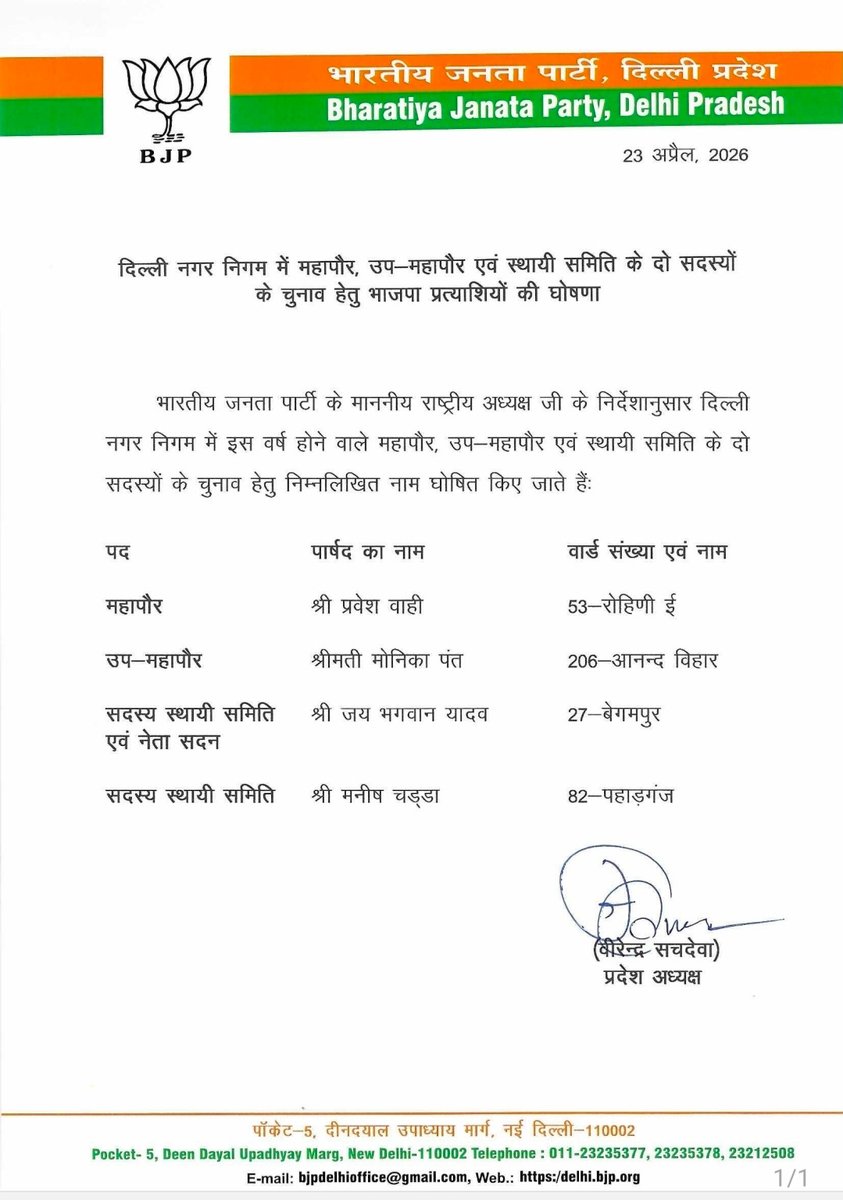 भारतीय जनता पार्टी, दिल्ली प्रदेश
Bharatiya Janata Party, Delhi Pradesh
BJP
23 अप्रैल, 2026
दिल्ली नगर निगम में महापौर, उप–महापौर एवं स्थायी समिति के दो सदस्यों
के चुनाव हेतु भाजपा प्रत्याशियों की घोषणा
भारतीय जनता पार्टी के माननीय राष्ट्रीय अध्यक्ष जी के निर्देशानुसार दिल्ली
नगर निगम में इस वर्ष होने वाले महापौर, उप–महापौर एवं स्थायी समिति के दो
सदस्यों के चुनाव हेतु निम्नलिखित नाम घोषित किए जाते हैंः
पद पार्षद का नाम वार्ड संख्या एवं नाम
महापौर श्री प्रवेश वाही 53–रोहिणी ई
उप–महापौर श्रीमती मोनिका पंत 206–आनन्द विहार
सदस्य स्थायी समिति श्री जय भगवान यादव 27–बेगमपुर
एवं नेता सदन
सदस्य स्थायी समिति श्री मनीष चड्डा 82–पहाड़गंज
(वीरेन्द्र सचदेवा)
प्रदेश अध्यक्ष
पॉकेट–5, दीनदयाल उपाध्याय मार्ग, नई दिल्ली–110002
Pocket- 5, Deen Dayal Upadhyay Marg, New Delhi-110002 Telephone : 011-23235377, 23235378, 23212508
E-mail: bjpdelhioffice@gmail.com, Web.: https:/delhi.bjp.org
1/1